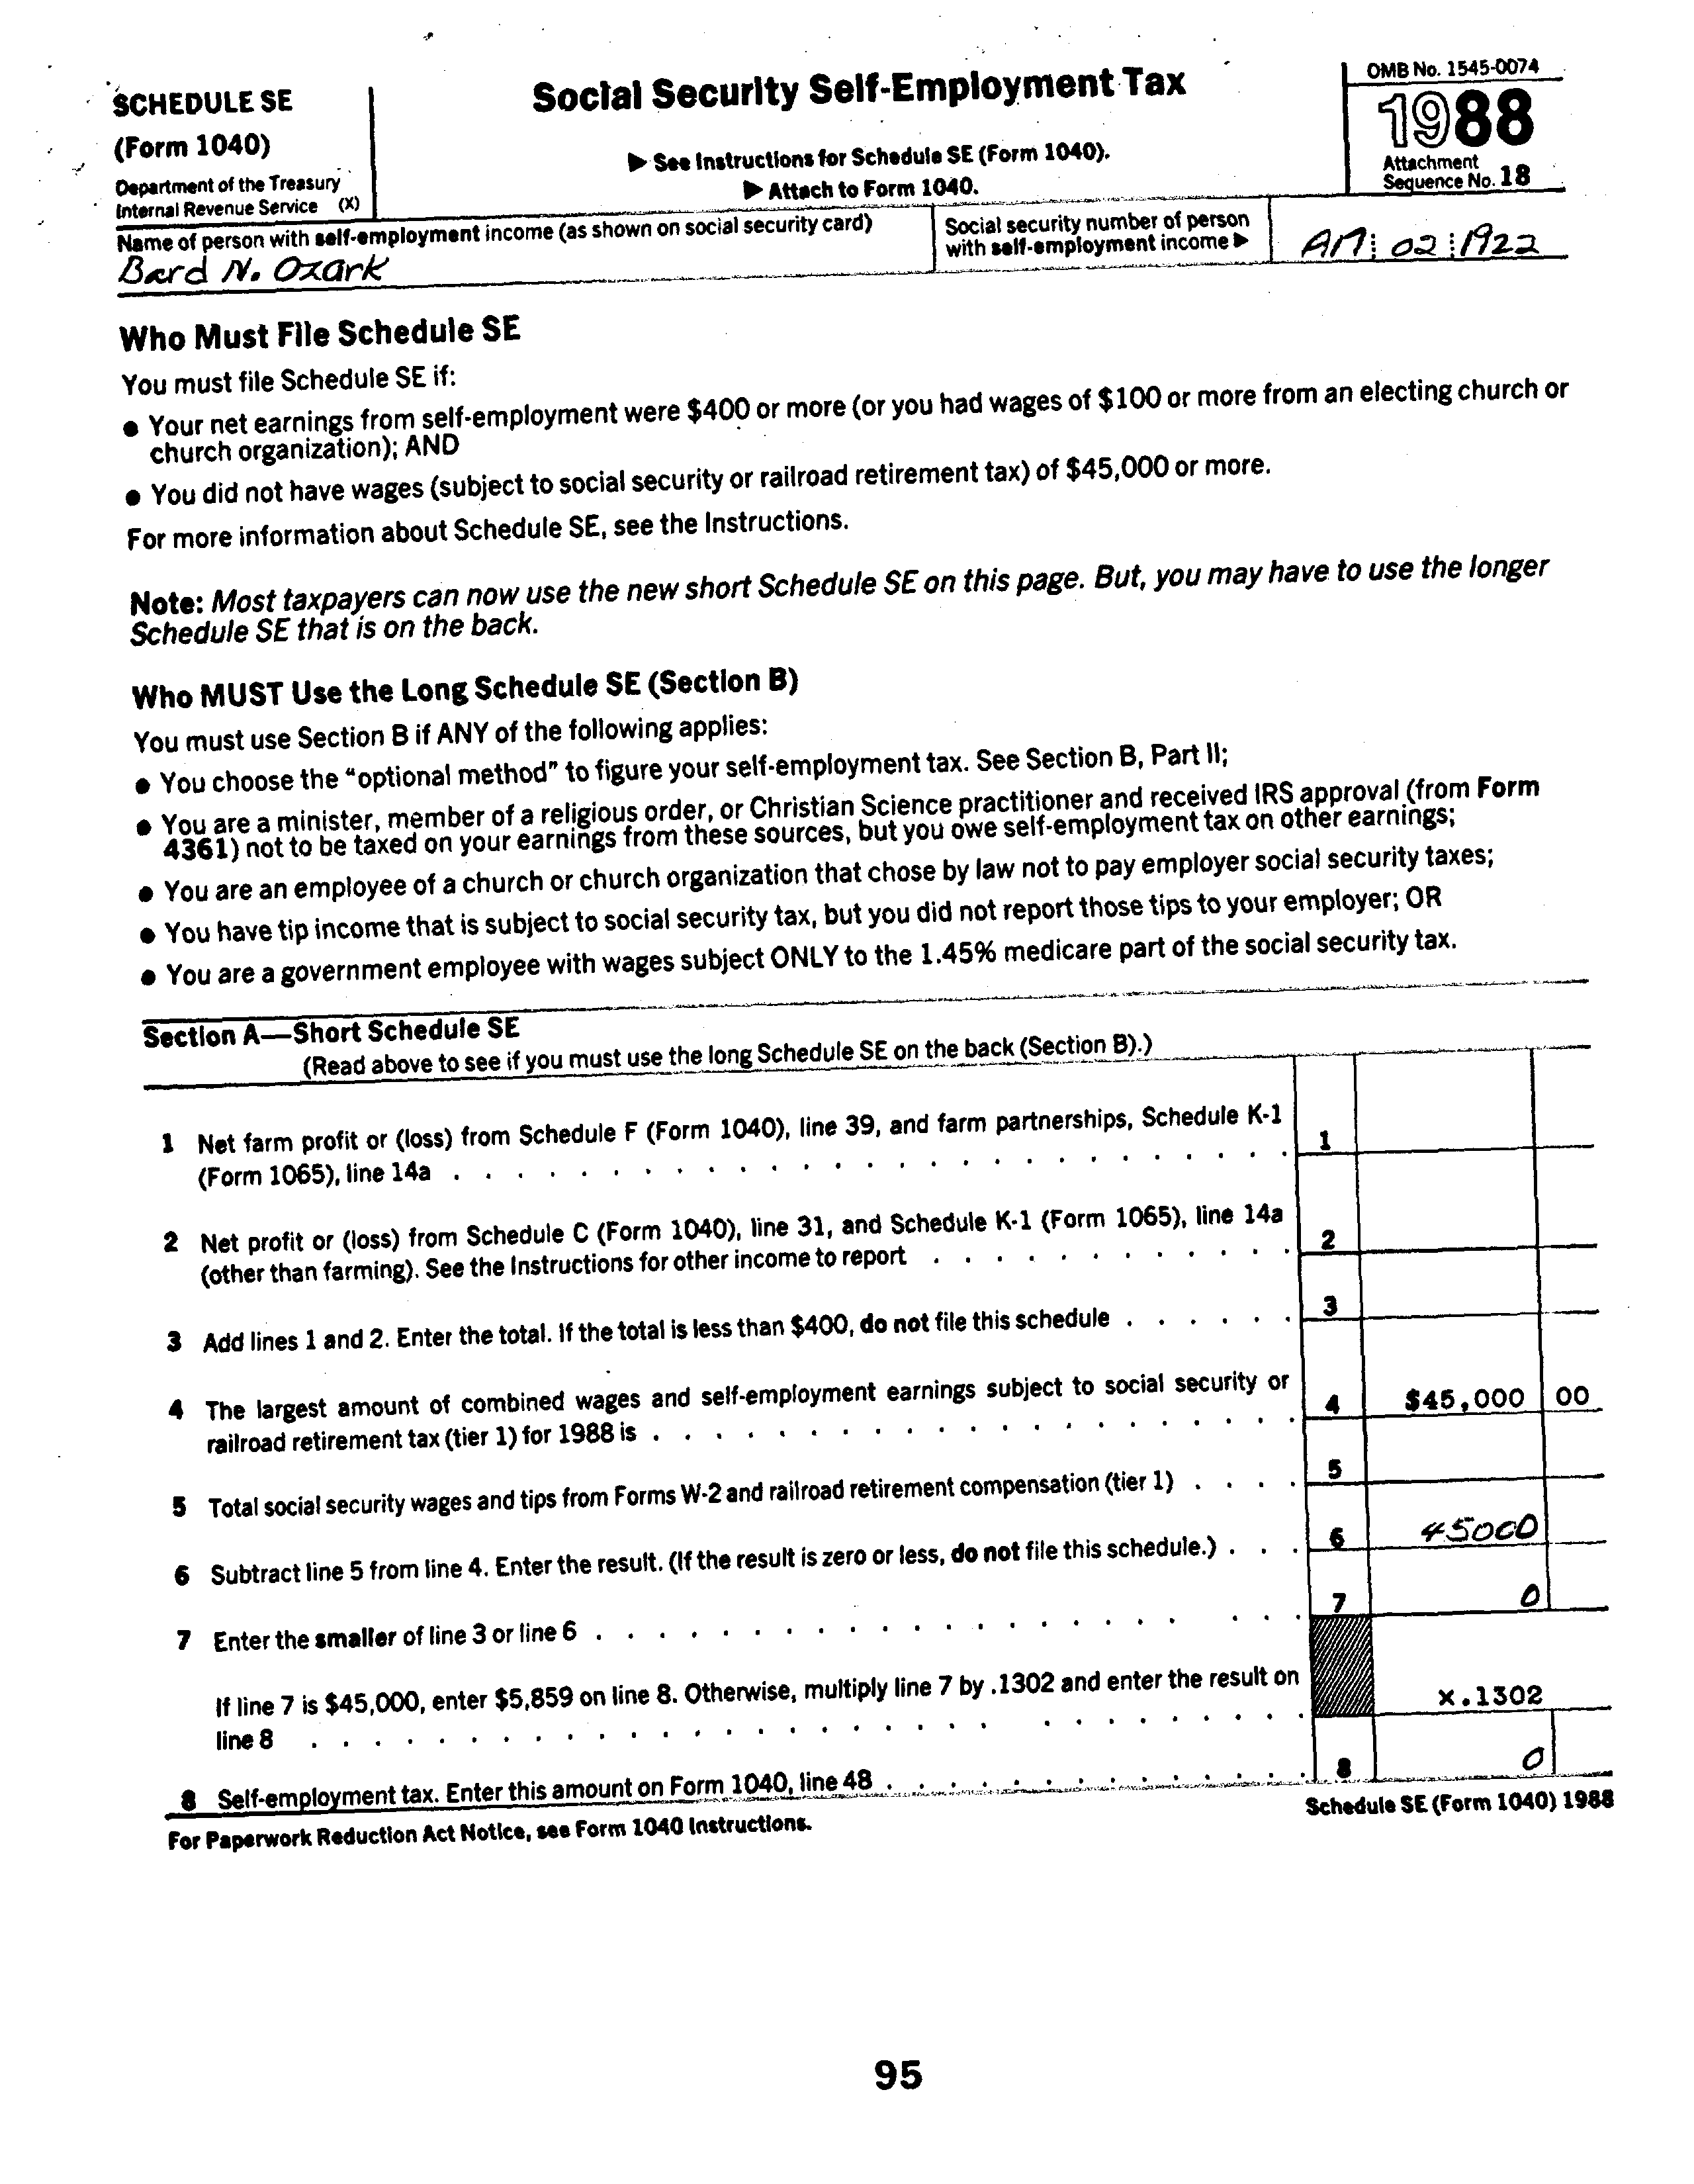 SCHEDULE SE
(Form 1040)
Department of the Treasury
Internal Revenue Service (X)
Social Security Self-Employment Tax
▶ See Instructions for Schedule SE (Form 1040).
▶ Attach to Form 1040.
OMB No. 1545-0074
1988
Attachment
Sequence No. 18
Name of person with self-employment income (as shown on social security card)
Bard N. Ozark
Social security number of person
with self-employment income ▶
02 1922
Who Must File Schedule SE
You must file Schedule SE if:
● Your net earnings from self-employment were $400 or more (or you had wages of $100 or more from an electing church or
church organization); AND
● You did not have wages (subject to social security or railroad retirement tax) of $45,000 or more.
For more information about Schedule SE, see the Instructions.
Note: Most taxpayers can now use the new short Schedule SE on this page. But, you may have to use the longer
Schedule SE that is on the back.
Who MUST Use the Long Schedule SE (Section B)
You must use Section B if ANY of the following applies:
● You choose the "optional method" to figure your self-employment tax. See Section B, Part II;
● You are a minister, member of a religious order, or Christian Science practitioner and received IRS approval (from Form
4361) not to be taxed on your earnings from these sources, but you owe self-employment tax on other earnings;
● You are an employee of a church or church organization that chose by law not to pay employer social security taxes;
● You have tip income that is subject to social security tax, but you did not report those tips to your employer; OR
● You are a government employee with wages subject ONLY to the 1.45% medicare part of the social security tax.
Section A—Short Schedule SE
(Read above to see if you must use the long Schedule SE on the back (Section B).)
1 Net farm profit or (loss) from Schedule F (Form 1040), line 39, and farm partnerships, Schedule K-1
(Form 1065), line 14a . . . . . . . . . . . . . . . . . . . . . . . . . . 1
2 Net profit or (loss) from Schedule C (Form 1040), line 31, and Schedule K-1 (Form 1065), line 14a
(other than farming). See the Instructions for other income to report . . . . . . . . . . . . 2
3 Add lines 1 and 2. Enter the total. If the total is less than $400, do not file this schedule . . . . . . 3
4 The largest amount of combined wages and self-employment earnings subject to social security or
railroad retirement tax (tier 1) for 1988 is . . . . . . . . . . . . . . . . . . . . . 4 $45,000 00
5 Total social security wages and tips from Forms W-2 and railroad retirement compensation (tier 1) . . . . 5
6 Subtract line 5 from line 4. Enter the result. (If the result is zero or less, do not file this schedule.) . . . 6 45000
7 Enter the smaller of line 3 or line 6 . . . . . . . . . . . . . . . . . . . . . 7 0
If line 7 is $45,000, enter $5,859 on line 8. Otherwise, multiply line 7 by .1302 and enter the result on
line 8 . . . . . . . . . . . . . . . . . . . . . . . . . . . . . . x.1302
8 Self-employment tax. Enter this amount on Form 1040, line 48 . . . . . . . . . . . . . . 8 0
For Paperwork Reduction Act Notice, see Form 1040 Instructions.
Schedule SE (Form 1040) 1988
95